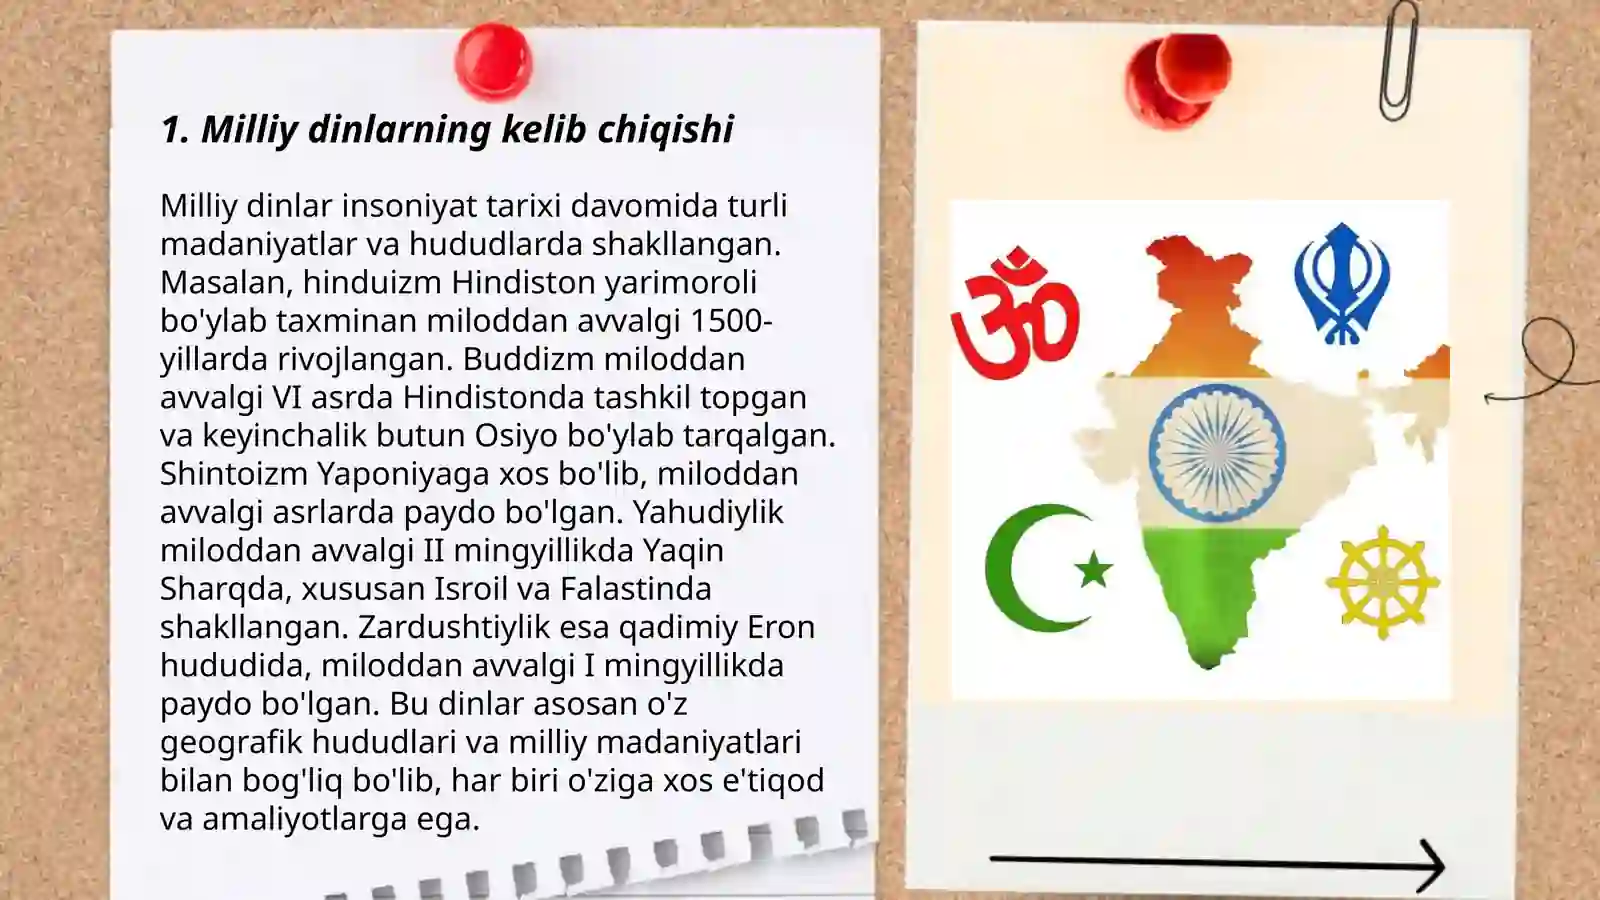 1. Milliy dinlarning kelib chiqishi
Milliy dinlar insoniyat tarixi davomida turli
madaniyatlar va hududlarda shakllangan.
Masalan, hinduizm Hindiston yarimoroli
bo'ylab taxminan miloddan avvalgi 1500-
yillarda rivojlangan. Buddizm miloddan
avvalgi VI asrda Hindistonda tashkil topgan
va keyinchalik butun Osiyo bo'ylab tarqalgan.
Shintoizm Yaponiyaga xos bo'lib, miloddan
avvalgi asrlarda paydo bo'lgan. Yahudiylik
miloddan avvalgi II mingyillikda Yaqin
Sharqda, xususan Isroil va Falastinda
shakllangan. Zardushtiylik esa qadimiy Eron
hududida, miloddan avvalgi I mingyillikda
paydo bo'lgan. Bu dinlar asosan o'z
geografik hududlari va milliy madaniyatlari
bilan bog'liq bo'lib, har biri o'ziga xos e'tiqod
va amaliyotlarga ega.
ॐ